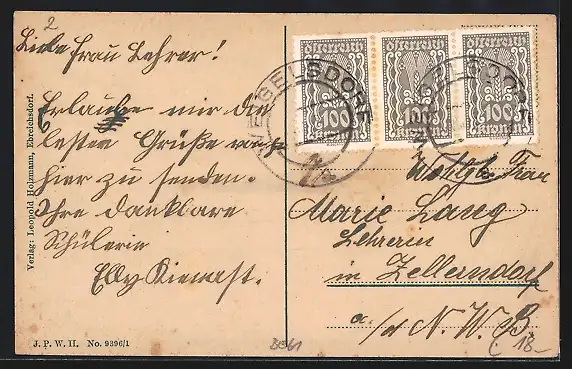 2
Liebe Frau Lehrer!
Erlaube mir die
besten Grüße von
hier zu senden.
Ihre dankbare
Schülerin
Elly Kienast.
Verlag: Leopold Holzmann, Ebreichsdorf.
J. P. W. II. No. 9396/1
Österreich
100
Kronen
Österreich
100
Kronen
Österreich
100
Kronen
WEIGELSDORF
Wohlg. Frau
Marie Lang
Lehrerin
in Zellerndorf
a/d N. W. B.
18-